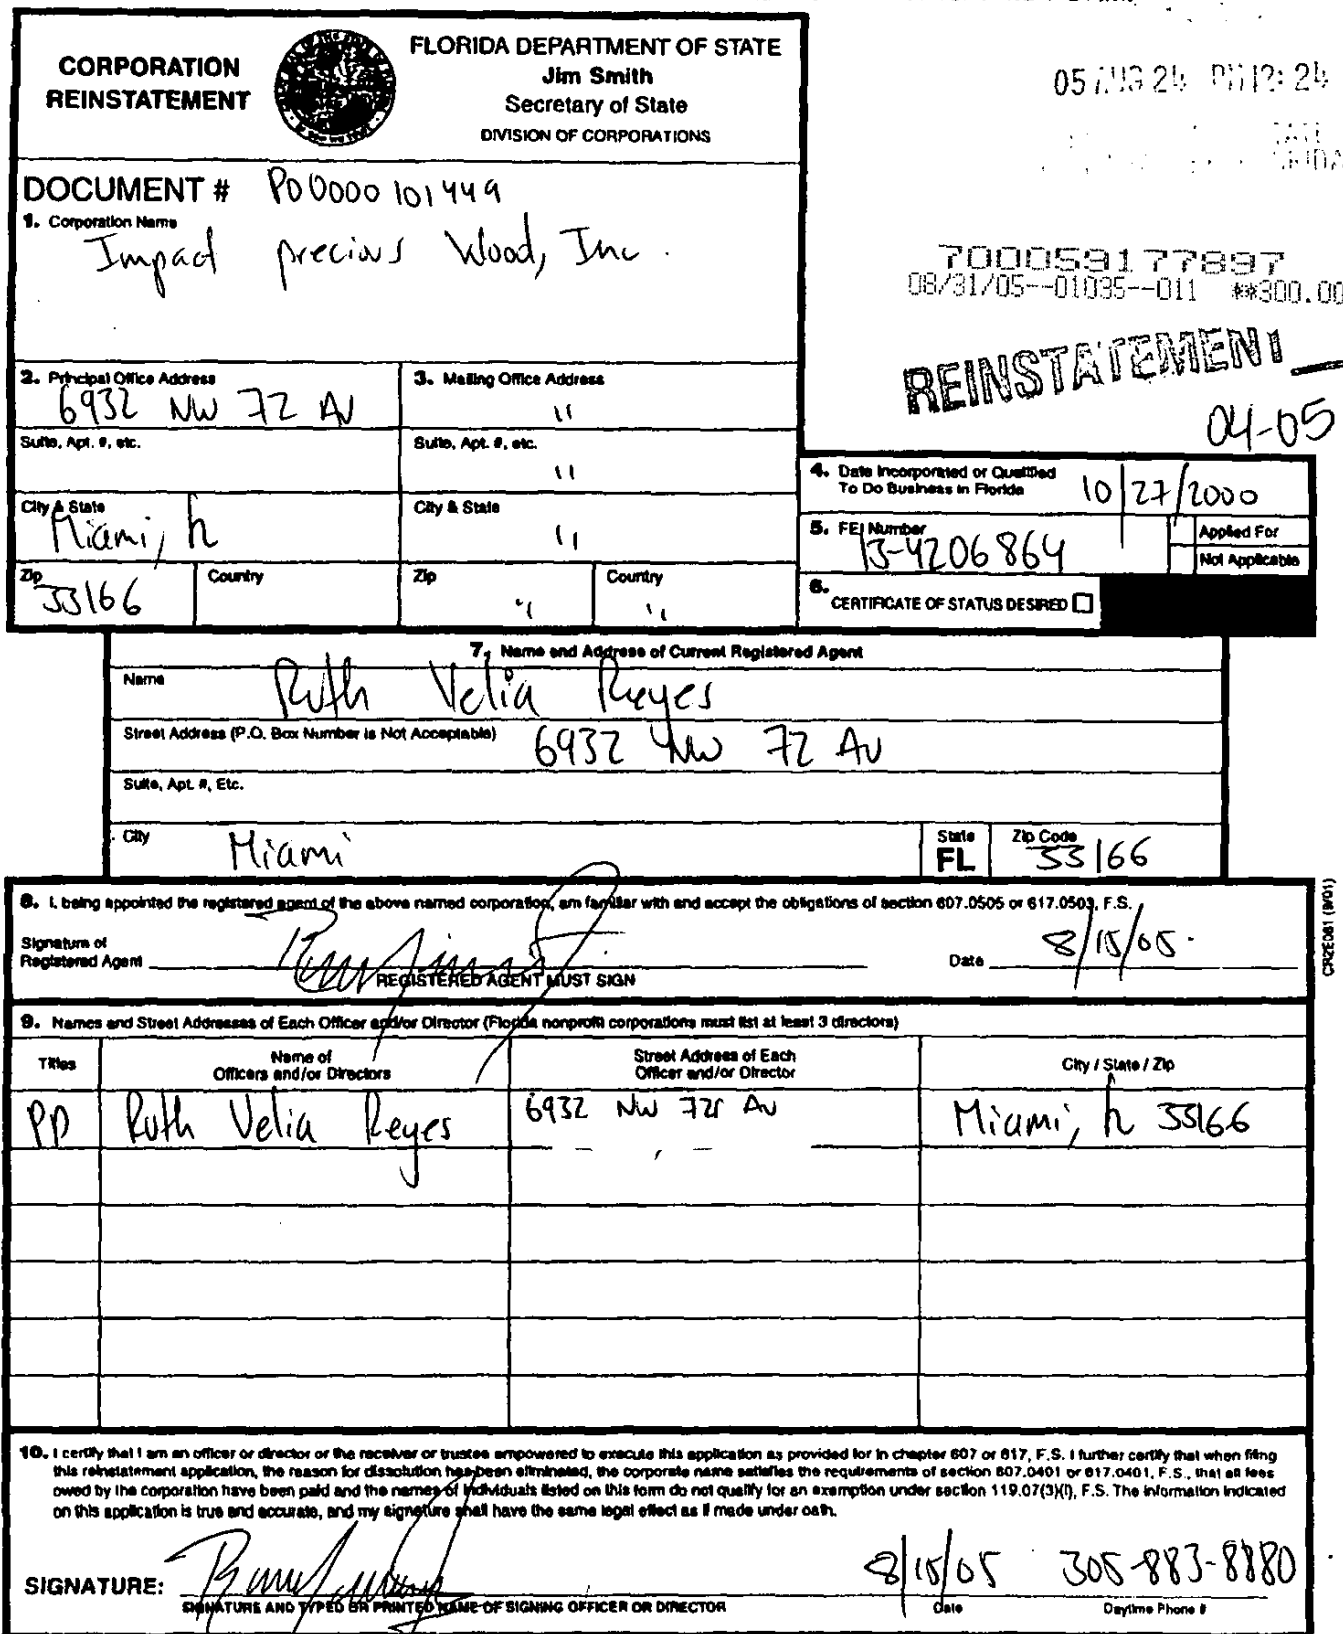 CORPORATION
REINSTATEMENT
FLORIDA DEPARTMENT OF STATE
Jim Smith
Secretary of State
DIVISION OF CORPORATIONS
05 AUG 24 PM 12: 24
DOCUMENT # P00000101449
1. Corporation Name
Impact precious Wood, Inc.
700059177897
08/31/05--01035--011 **300.00
REINSTATEMENT
04-05
2. Principal Office Address
6932 NW 72 AV
3. Mailing Office Address
"
Suite, Apt. #, etc.
Suite, Apt. #, etc.
"
City & State
Miami, Fl
City & State
"
Zip
33166
Country
Zip
"
Country
"
4. Date Incorporated or Qualified
To Do Business in Florida
10/27/2000
5. FEI Number
13-4206864
Applied For
Not Applicable
6.
CERTIFICATE OF STATUS DESIRED
7. Name and Address of Current Registered Agent
Name
Ruth Velia Reyes
Street Address (P.O. Box Number is Not Acceptable) 6932 NW 72 AV
Suite, Apt. #, Etc.
City
Miami
State
FL
Zip Code
33166
8. I, being appointed the registered agent of the above named corporation, am familiar with and accept the obligations of section 607.0505 or 617.0503, F.S.
Signature of
Registered Agent
Date 8/15/05
REGISTERED AGENT MUST SIGN
CR2E081 (9/01)
9. Names and Street Addresses of Each Officer and/or Director (Florida nonprofit corporations must list at least 3 directors)
Titles
Name of
Officers and/or Directors
Street Address of Each
Officer and/or Director
City / State / Zip
PD
Ruth Velia Reyes
6932 NW 72 AV
Miami, Fl 33166
10. I certify that I am an officer or director or the receiver or trustee empowered to execute this application as provided for in chapter 607 or 617, F.S. I further certify that when filing
this reinstatement application, the reason for dissolution has been eliminated, the corporate name satisfies the requirements of section 607.0401 or 617.0401, F.S., that all fees
owed by the corporation have been paid and the names of individuals listed on this form do not qualify for an exemption under section 119.07(3)(i), F.S. The information indicated
on this application is true and accurate, and my signature shall have the same legal effect as if made under oath.
SIGNATURE:
8/15/05 305-883-8880
SIGNATURE AND TYPED OR PRINTED NAME OF SIGNING OFFICER OR DIRECTOR
Date
Daytime Phone #